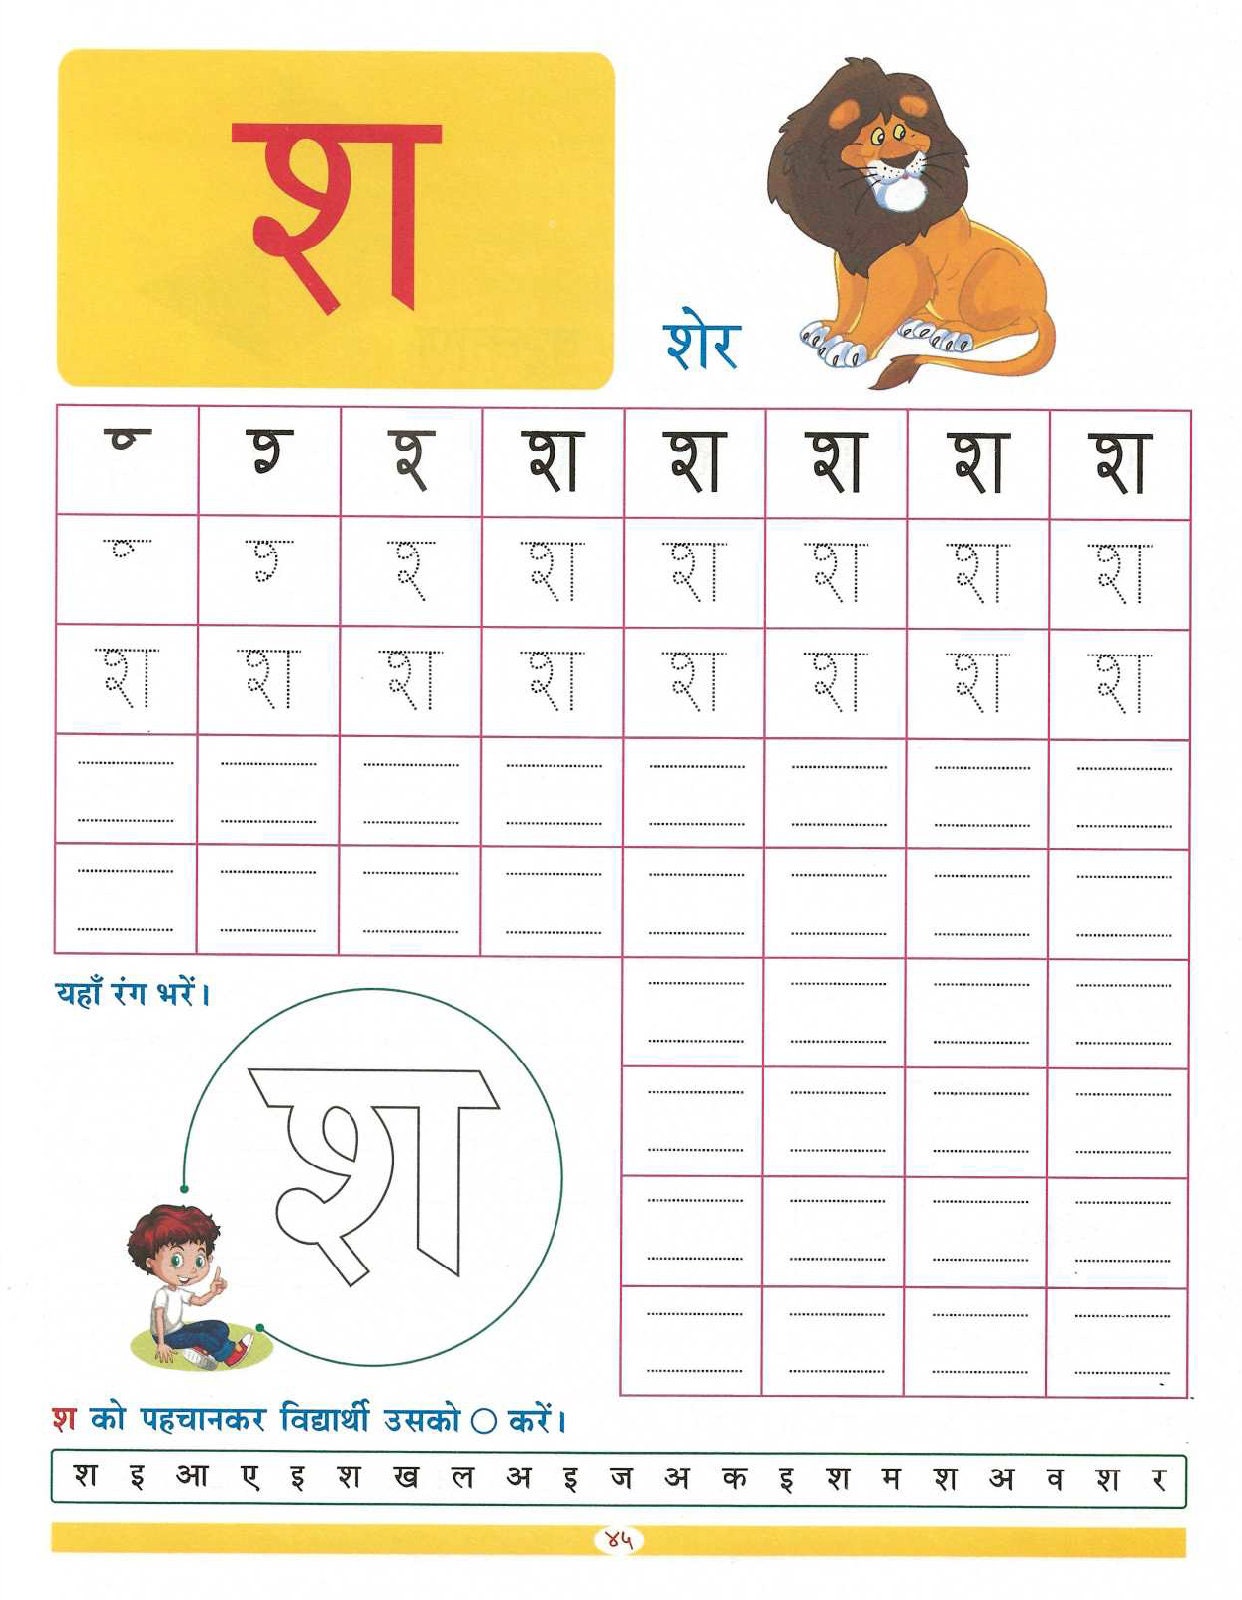 श
शेर
श श श श श
श श श श श
श श श श श श श श
यहाँ रंग भरें।
श
श को पहचानकर विद्यार्थी उसको ○ करें।
श इ आ ए इ श ख ल अ इ ज अ क इ श म श अ व श र
४५